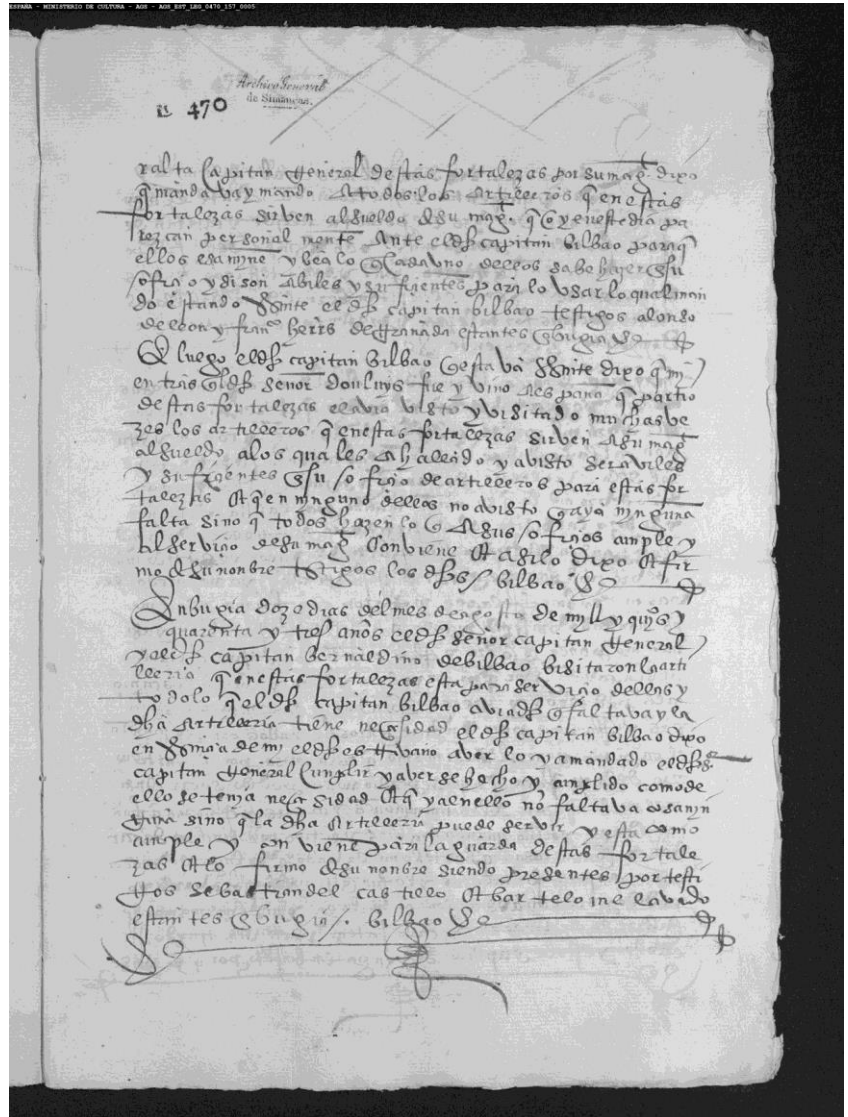 ESPAÑA - MINISTERIO DE CULTURA - AGS - AGS_EST_LEG_0470_157_0005
Archivo General
de Simancas.
470
ralta capitan general destas fortalezas por su mag. dixo
q mandava y mando a todos los artilleros q en estas
fortalezas sirven al sueldo de su mag. q oy en este dia pa
rezcan personalmente ante el dho capitan bilbao para q
ellos esamyne y vea lo q cada uno dellos sabe hazer en su
ofiçio y si son abiles y sufiçientes para lo usar lo qual man
do estando psente el dho capitan bilbao testigos alonso
de leon y franco herrs de granada estantes en bugia
E luego el dho capitan bilbao q estava psente dixo q my
entras q el dho señor don luys fue y vino despaña q partio
destas fortalezas el avia visto y visitado muchas ve
zes los artilleros q en estas fortalezas sirven a su mag
al sueldo a los quales a hallado y a visto ser aviles
y sufiçientes en su ofiçio de artilleros para estas for
talezas e q en nynguno dellos no a visto q aya nynguna
falta sino q todos hazen lo q a sus ofiçios cunple y
al serviçio de su mag conviene e asi lo dixo e fir
mo de su nonbre testigos los dhos bilbao
En bugia doze dias del mes de agosto de myll y quyos y
quarenta y tres años el dho señor capitan general
y el dho capitan bernaldino de bilbao visitaron la arti
lleria q en estas fortalezas esta para serviçio dellas y
todo lo q el dho capitan bilbao avia dho q faltava y la
dha artilleria tiene neçesidad el dho capitan bilbao dixo
en psençia de my el dho escrivano aver lo ya mandado el dho sr
capitan general cunplir y averse hecho y cunplido como de
ello se tenia neçesidad e q ya en ello no faltava cosa nyn
guna sino q la dha artilleria puede servir y esta como
cunple y conviene para la guarda destas fortale
zas e lo firmo de su nonbre siendo presentes por testi
gos sebastian del castillo e bartelome lavado
estantes en bugia bilbao